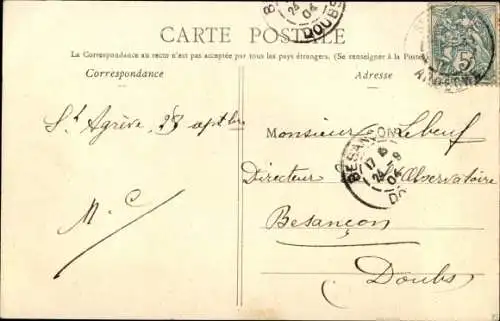 CARTE POSTALE
La Correspondance au recto n'est pas acceptée par tous les pays étrangers. (Se renseigner à la Poste)
Correspondance
Adresse
St Agrève
M. C.
Monsieur Lebeuf
Directeur Observatoire
Besançon
Doubs
24
04
DOUBS
5
BESANÇON
17
24 - 9
04